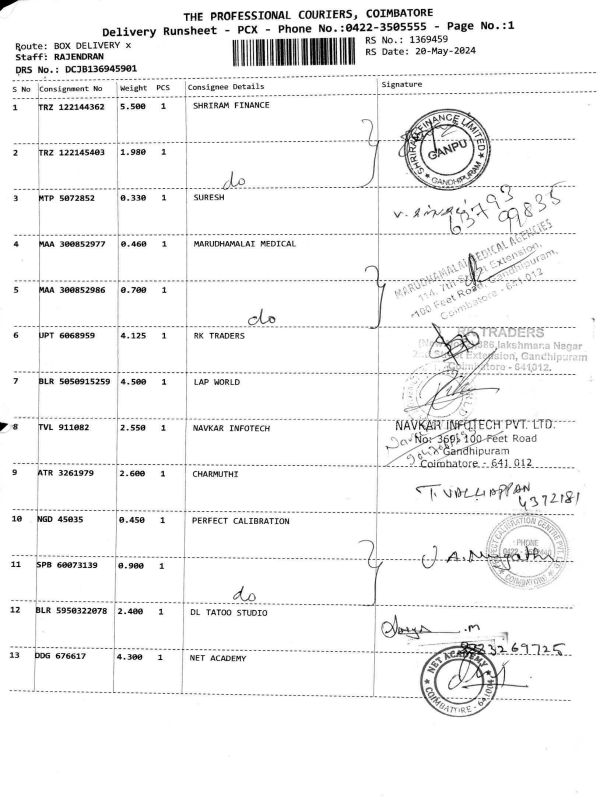 THE PROFESSIONAL COURIERS, COIMBATORE
Delivery Runsheet - PCX - Phone No.:0422-3505555 - Page No.:1
Route: BOX DELIVERY x
RS No.: 1369459
Staff: RAJENDRAN
RS Date: 20-May-2024
DRS No.: DCJB136945901
S No Consignment No Weight PCS Consignee Details Signature
1 TRZ 122144362 5.500 1 SHRIRAM FINANCE
SHRIRAM FINANCE LIMITED
GANPU
GANDHIPURAM
2 TRZ 122145403 1.980 1
do
3 MTP 5072852 0.330 1 SURESH
63793
99835
4 MAA 300852977 0.460 1 MARUDHAMALAI MEDICAL
MARUDHAMALAI MEDICAL AGENCIES
114, 7th Extension,
100 Feet Road, Gandhipuram,
Coimbatore - 641 012
5 MAA 300852986 0.700 1
do
6 UPT 6068959 4.125 1 RK TRADERS
RK TRADERS
lakshmana Nagar
Extension, Gandhipuram
Coimbatore - 641012.
7 BLR 5050915259 4.500 1 LAP WORLD
8 TVL 911082 2.550 1 NAVKAR INFOTECH
NAVKAR INFOTECH PVT. LTD.
No: 369, 100 Feet Road
Gandhipuram
Coimbatore - 641 012
9 ATR 3261979 2.600 1 CHARMUTHI
T. VALLIAPPAN
4372181
10 NGD 45035 0.450 1 PERFECT CALIBRATION
PERFECT CALIBRATION CENTRE PVT. LTD
PHONE
COIMBATORE
11 SPB 60073139 0.900 1
do
12 BLR 5950322078 2.400 1 DL TATOO STUDIO
13 DDG 676617 4.300 1 NET ACADEMY
NET ACADEMY
COIMBATORE